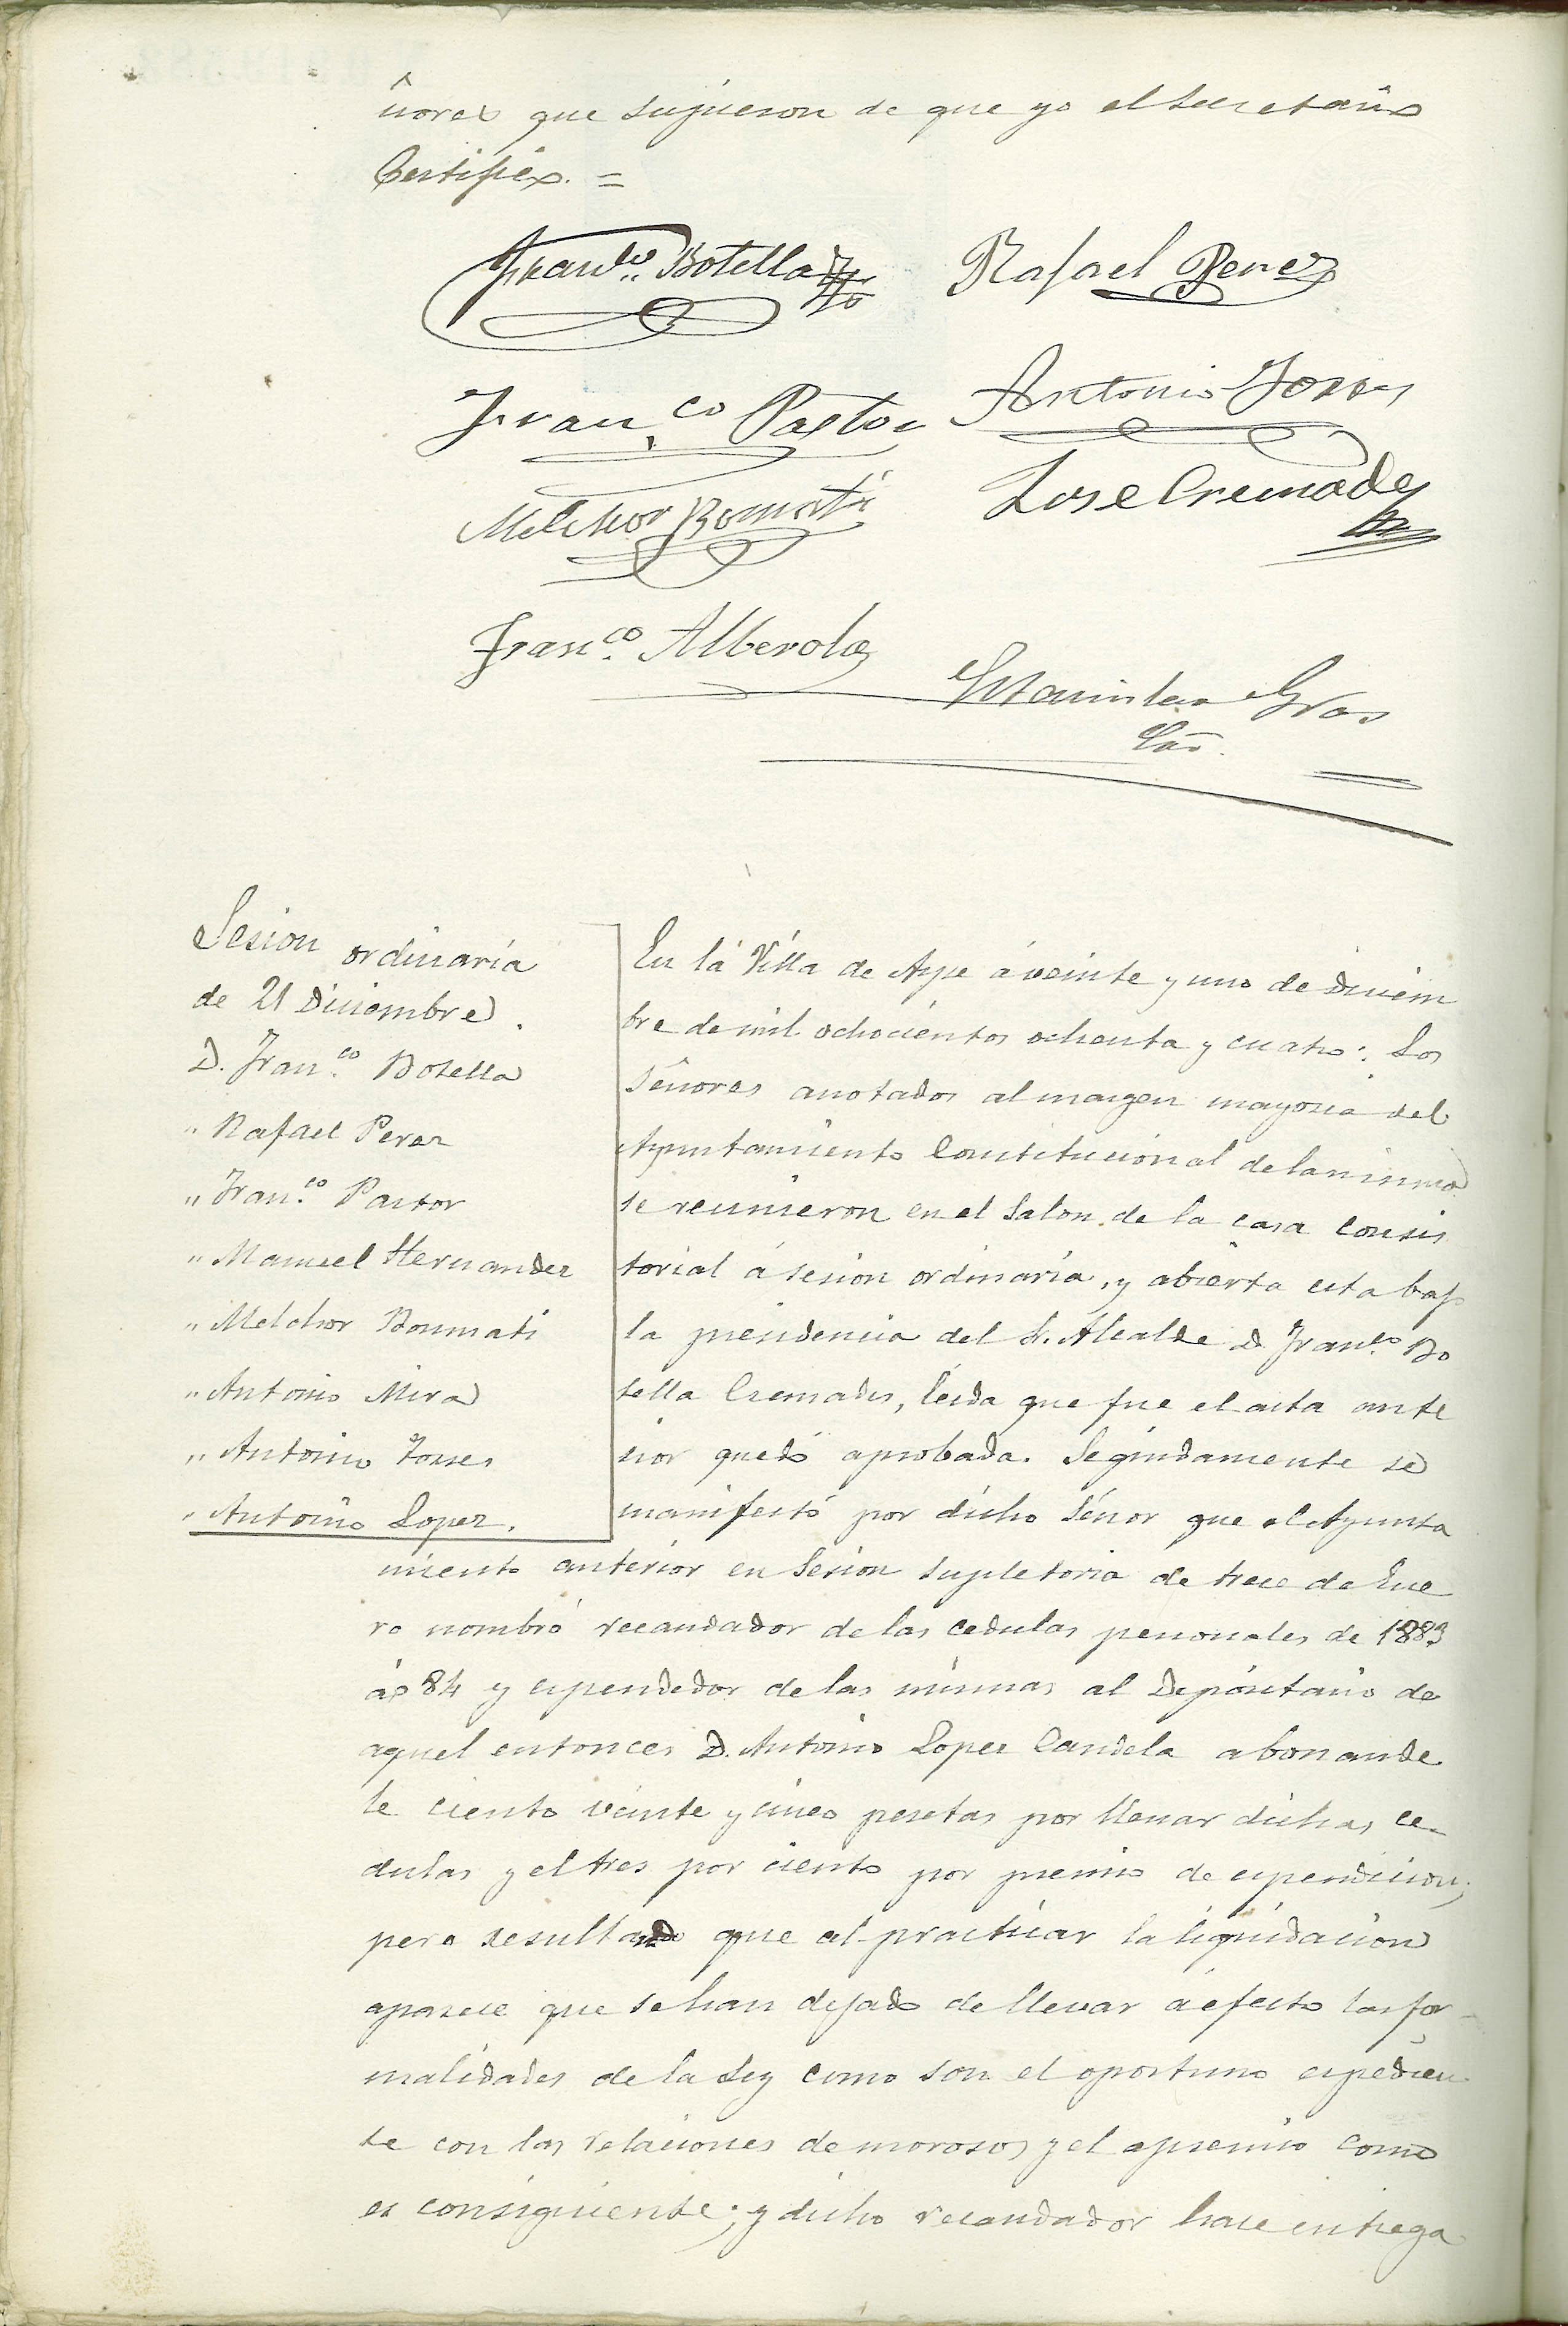 ñores que supieron de que yo el Secretario
Certifico. =
Franco. Botella
Rafael Perez
Franco. Pastor
Antonio Torres
Melchor Bonmati
Jose Cremades
Franco. Alberola
Estanislao Gras
Srio.
Sesion ordinaria
de 21 Diciembre.
D. Franco. Botella
" Rafael Perez
" Franco. Pastor
" Manuel Hernandez
" Melchor Bonmati
" Antonio Mira
" Antonio Torres
" Antonio Lopez.
En la Villa de Aspe á veinte y uno de Diciem
bre de mil ochocientos ochenta y cuatro: Los
Señores anotados al margen mayoria del
Ayuntamiento Constitucional de la misma
se reunieron en el Salon de la casa consis
torial á sesion ordinaria, y abierta esta bajo
la presidencia del Sr. Alcalde D. Franco. Bo
tella Cremades, leida que fue el acta ante
rior quedó aprobada. Seguidamente se
manifestó por dicho Señor que el Ayunta
miento anterior en Sesion supletoria de trece de Ene
ro nombró recaudador de las cedulas personales de 1883
á 84 y espendedor de las mismas al Depositario de
aquel entonces D. Antonio Lopez Candela abonande
le ciento veinte y cinco pesetas por llenar dichas ce-
dulas y el tres por ciento por premio de espendicion;
pero resultando que al practicar la liquidacion
aparece que se han dejado de llevar á efecto las for-
malidades de la Ley como son el oportuno espedien-
te con las relaciones de morosos y el apremio como
es consiguiente; y dicho recaudador hace entrega